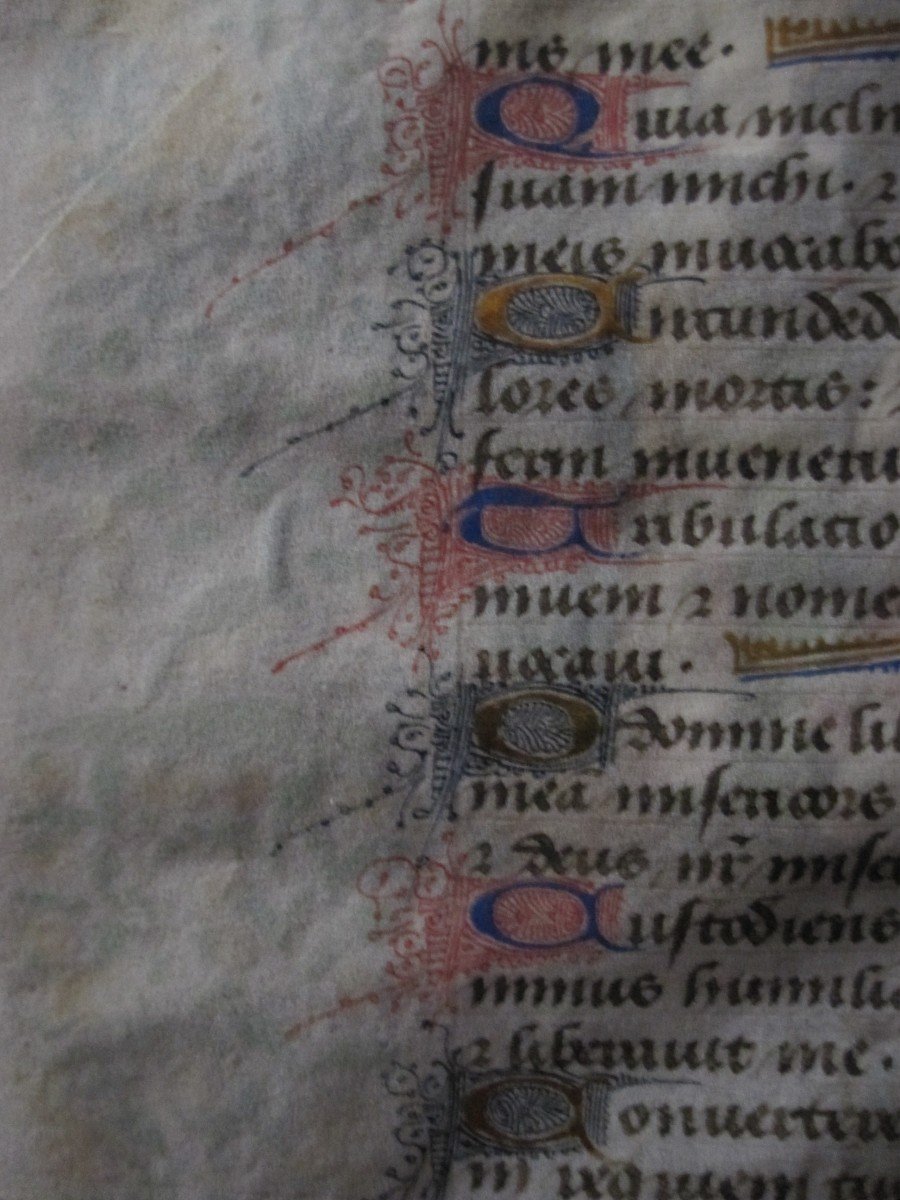 nis mee.
Quia incli
suam michi. ⁊
meis inuocabo
Circundede
lores mortis:
ferni inueneru
Tribulacio
inueni ⁊ nome
uocaui.
O domine li
mea misericors
⁊ deus nr̄ mise
Custodiens
uinus humilia
⁊ liberauit me.
Conuertere
in requiem tu